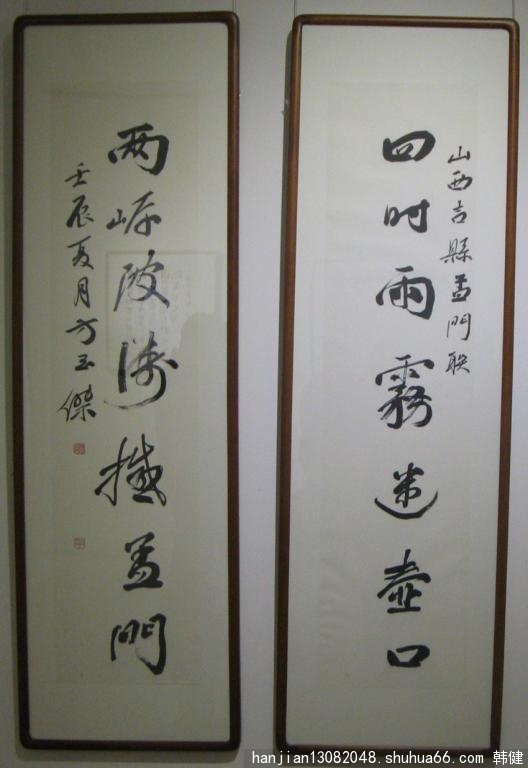 山西吉縣孟門联
四时雨霧迷壶口
两岸波涛撼孟門
壬辰夏月方玉傑
hanjian13082048.shuhua66.com 韩健